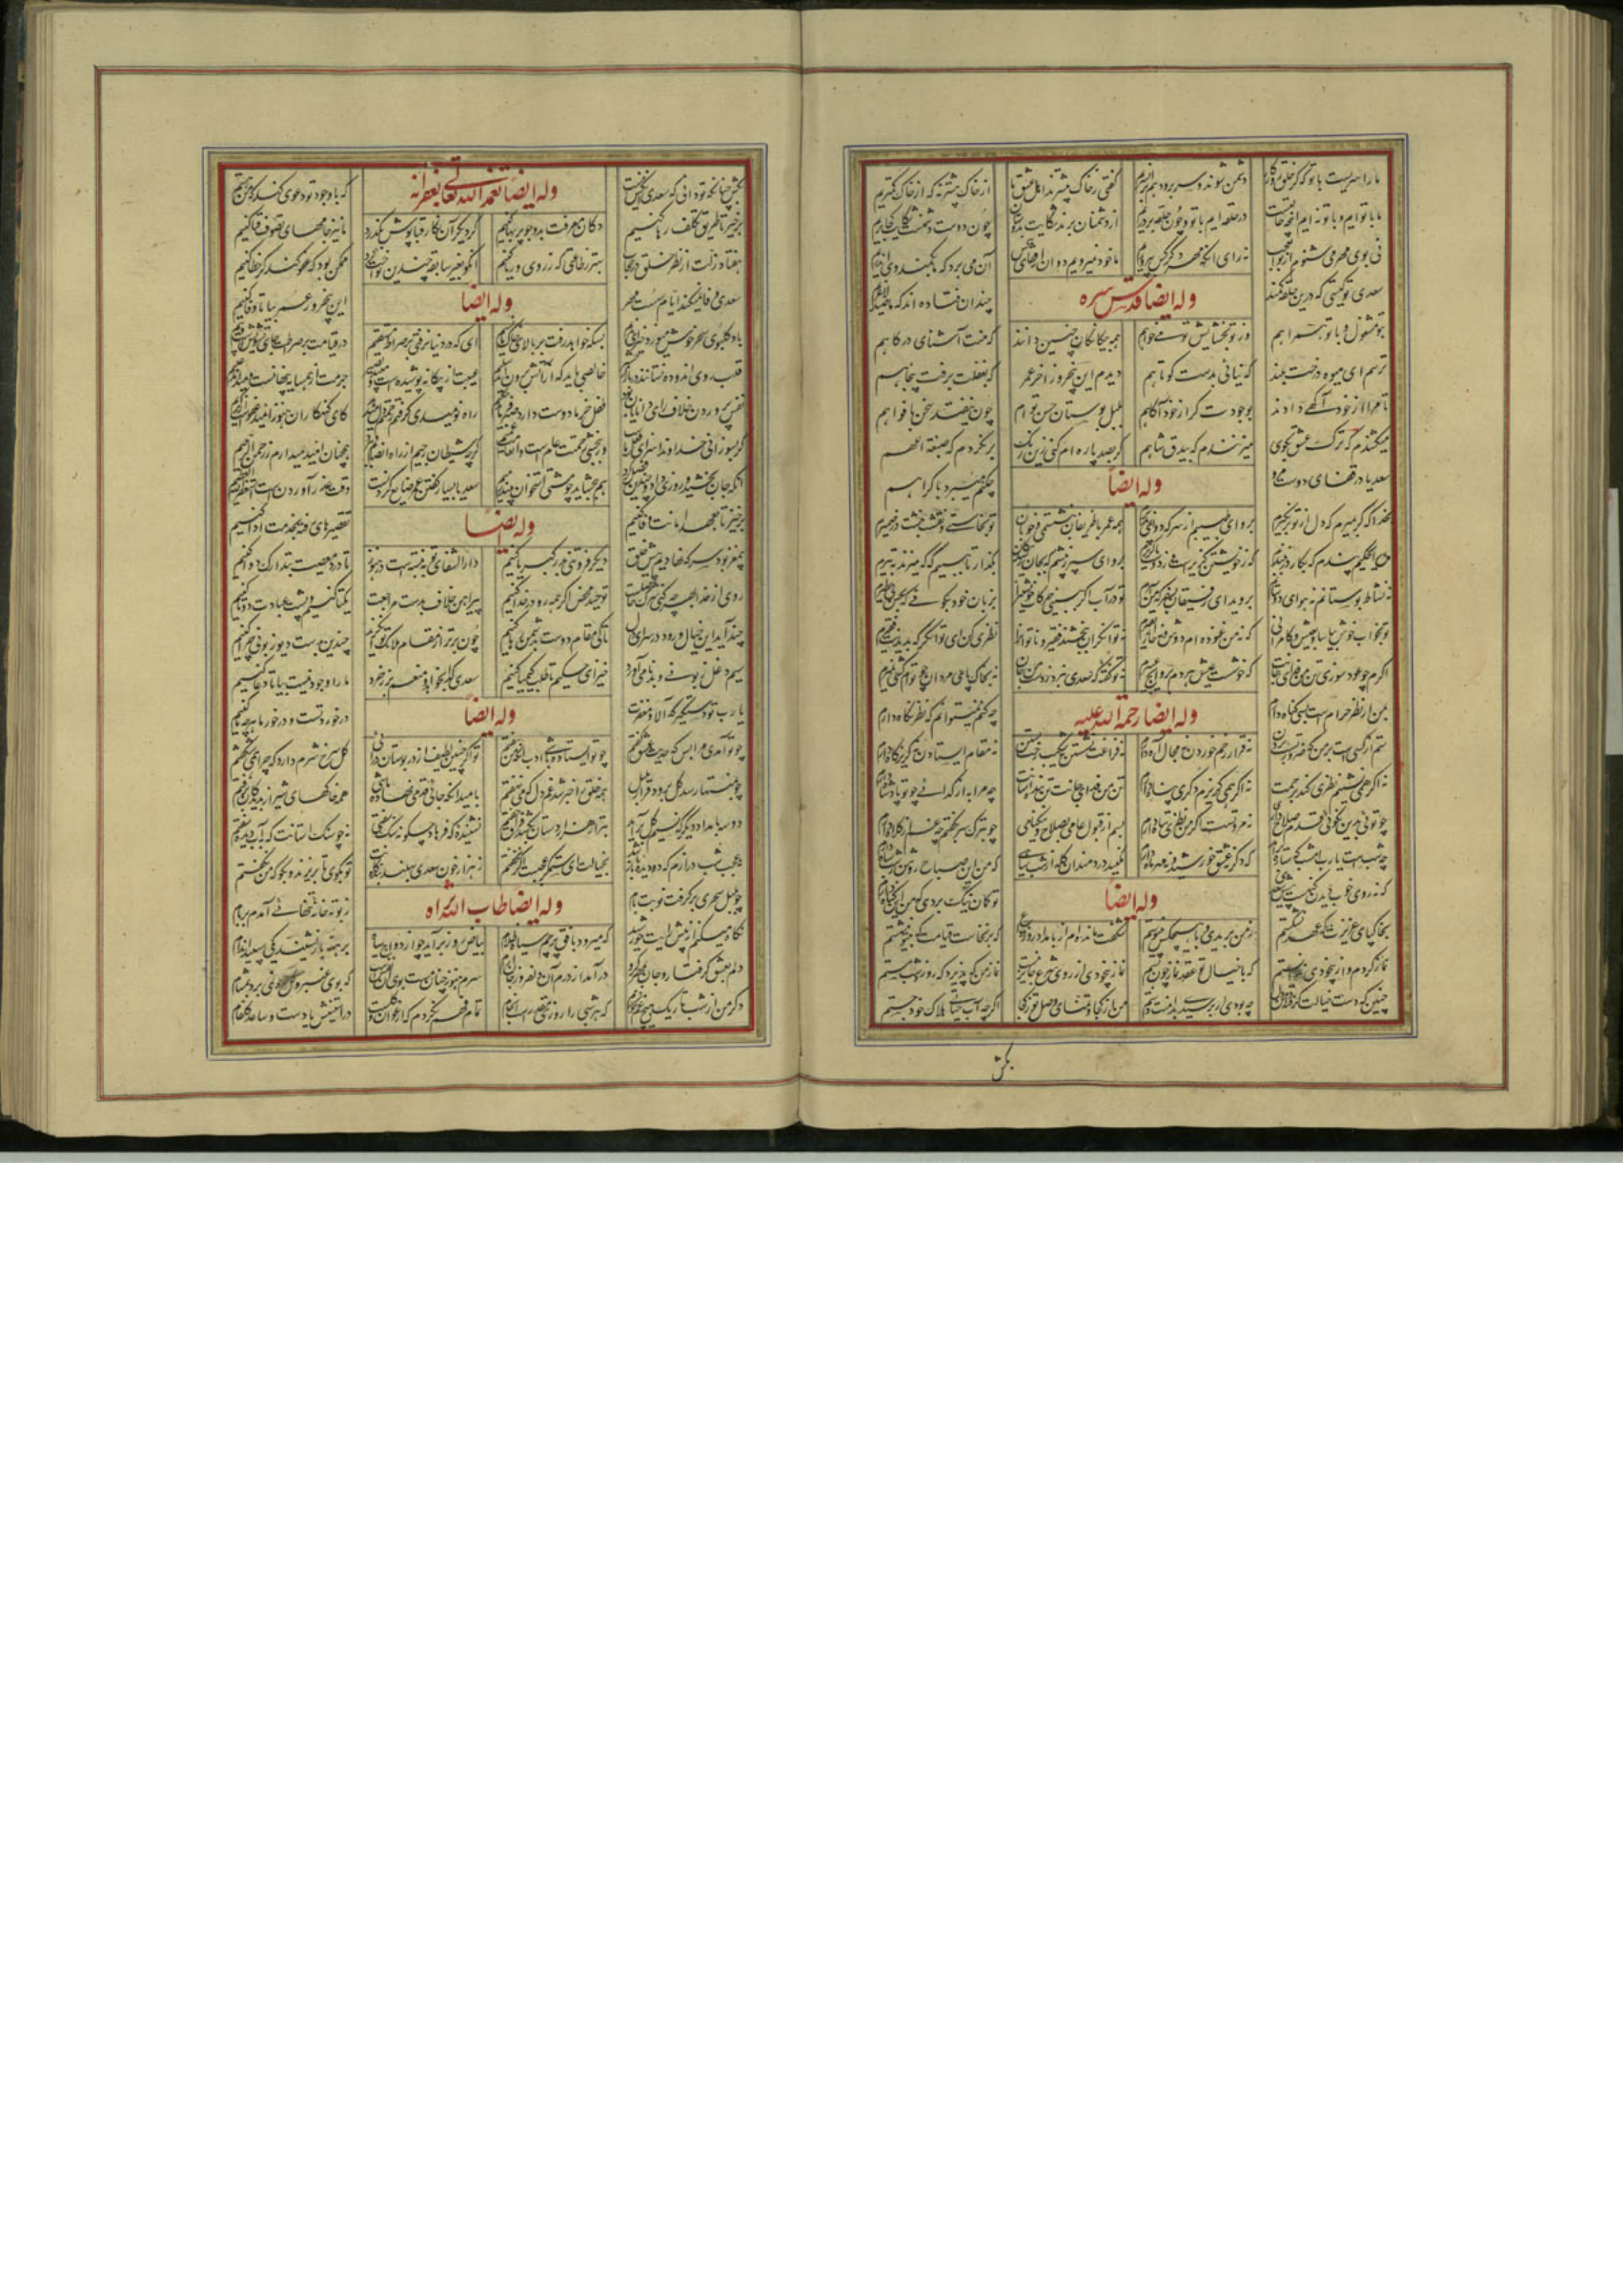 ما را سریست با تو که گر خلق روزگار دشمن شوند و سر برود هم بران سریم گفتی ز خاک بیشترند اهل عشق ما از خاک بیشتر نه که از خاک کمتریم
ما با توایم و با تو نه ایم اینچه حالتست در حلقه ایم با تو و چون حلقه بر دریم از دشمنان برند شکایت بدوستان چون دوست دشمنست شکایت کجا بریم
نی بوی مهر می شنوم از تو ای عجب نه رای آنکه مهر دگر کس بپروریم ما خود نمیرویم دوان از قفای کس آن می برد که ما بکمند وی اندریم
سعدی تو کیستی که درین حلقه کمند چندان فتاده اند که ما صید لاغریم
وله ایضا قدس سره
بتو مشغول و با تو همراهم وز تو بخشایش تو میخواهم همه بیگانگان چنین دانند که منت آشنای درگاهم
ترسم ای میوه درخت بلند که نیائی بدست کوتاهم دیدم این پنجروز آخر عمر که بغفلت برفت پنجاهم
تا مرا از خود آگهی دادند بوجودت گر از خود آگاهم بلبل بوستان حسن توام چون نیفتد سخن در افواهم
میکشندم که ترک عشق بگوی میزنندم که بیدق شاهم گر بصد پاره ام کنی زین رنگ بر نگردم که صبغة اللهم
سعدیا در قفای دوست مرو چکنم میبرد باکراهم
وله ایضاً
بخدا که گر بمیرم که دل از تو بر نگیرم برو ای طبیبم از سر که دوا نمی پذیرم همه عمر با ظریفان بنشستمی و خوبان تو بخاستی و نقشت بنشست در ضمیرم
حکیم پندم که بکار در نبندم که ز خویشتن گزیرست و ز دوست ناگزیرم برو ای سپر ز پیشم که بجان رسید پیکان بگذار تا ببینیم که میزند به تیرم
نه نشاط بوستانم نه هوای دوستانم بروید ای رفیقان بسفر که من اسیرم تو در آب اگر ببینی حرکات خویشتن را بزبان خود بگوئی که بحسن بی نظیرم
تو بخواب خوش بیاسا و بعیش و کامرانی که نه من غنوده ام دوش و نه مردم از نفیرم نه توانگران ببخشند فقیر و ناتوان را نظری کن ای توانگر که بدیدنت فقیرم
اگرم چو عود سوزی تن من فدای جانت که خوشست عیش مردم بروایح عبیرم نه تو گفته که سعدی نبرد ز دست من جان نه بخاک پای مردان چو توام کشی نمیرم
من اگر نظر حرام است بسی گناه دارم چه کنم نمیتوانم که نظر نگاه دارم
وله ایضا رحمة الله علیه
ستم از کسی است بر من که ضرورتست بردن نه قرار زخم خوردن نه مجال آه دارم نه فراغت نشستن نه شکیب رخت بستن نه مقام ایستادن نه گریزگاه دارم
نه اگر همی نشینم نظری کند برحمت نه اگر همی گریزم دگری پناه دارم تن من فدای جانت چه مرا به از گدائی چو تو پادشاه دارم
چو توئی بدین نکوئی نه مروتست اگر من نظری تباه دارم بسم از قبول عامی و صلاح و نیکنامی چو بترک سر بگفتم چه غم از کلاه دارم
چه شب است یارب امشب که ستاره که دگر نه عشق خورشید و نه مهر ماه دارم مکنید دردمندان گله از شب سیاهی که من این صباح روشن ز شب سیاه دارم
که نه روی خوب دیدن گنهست پیش سعدی تو گمان نیک بردی که من این گناه دارم
وله ایضاً
بخاکپای عزیزت که عهد نشکستم ز من بریدی و با هیچکس نپیوستم شگفت مانده ام از بامداد روز وداع که برنخاست قیامت چو بی تو بنشستم
نماز کردم و از بیخودی ندانستم که با خیال تو عقد نماز چون بستم نماز بیخودی از روی شرع جایز نیست نماز من که پذیرد که روز و شب مستم
چنین که دست خیالت گرفت دامن من چه بودی ار برسیدی بدامنت دستم من از کجا و تمنای وصل تو ز کجا اگرچه آب حیاتی هلاک خود جستم
بکش
بکش چنانکه تو دانی که سعدی آنکس نیست که با وجود تو دعوی کند که من هستم
وله ایضا تغمده الله تعالی بغفرانه
برخیز تا طریق تکلف رها کنیم دکان معرفت بدو جو پر بها کنیم گر دیگر آن نگار قباپوش بگذرد ما نیز جامهای تصوف قبا کنیم
هفتاد زلت از نظر خلق در حجاب بهتر ز طاعتی که ز روی و ریا کنیم آنکو بغیر سابقه چندین نواخت کرد ممکن بود که عفو کند گر خطا کنیم
سعدی وفا نمیکند ایام سست مهر این پنجروز عمر بیا تا وفا کنیم
وله ایضاً
باد گلبوی سحر خوش میوزد خیز ای ندیم بسکه خواهد رفت بر بالای خاک ما نسیم ای که در دنیا نرفتی بر صراط مستقیم در قیامت بر صراطت جای تشویش است و بیم
قلب روی اندوده نستانند در بازار خالصی باید که از آتش برون آید سلیم عیبت از بیگانه پوشیده است و می بیند بصیر همسایه پنهانست و میداند علیم
نفس پروردن خلاف رای دانایان بود طفل خرما دوست دارد صبر فرماید حکیم راه نومیدی گرفتم رحمتم دل میدهد کای گنهکاران هنوز امید عفوست از کریم
گر بسوزانی خداوندا سزای فعل ماست ور ببخشی رحمتت عام است و احسانت قدیم گرچه شیطان رجیم از راه انصافم ببرد همچنان امید میدارم برحمن رحیم
آنکه جان بخشید و روزی داد و چندین لطف کرد هم ببخشاید چو مشتی استخوان بیند رمیم سعدیا بسیار گفتن عمر ضایع کردنست وقت عذر آوردن است استغفرالله العظیم
برخیز تا بعهد امانت وفا کنیم تقصیرهای رفته بخدمت ادا کنیم
وله ایضاً
بی مغز بود سر که نهادیم پیش خلق دیگر فروتنی بدر کبریا کنیم دارالشفای توبه نبسته است در هنوز تا درد معصیت بتدارک دوا کنیم
روی از خدا بهر چه کنی شرک خالصست توحید محض کز همه رو در خدا کنیم پیراهن خلاف بدست مراجعت یکتا کنیم و پشت عبادت دوتا کنیم
چند آید این خیال و رود در سرای دل تا کی مقام دوست بدشمن رها کنیم چون برتر از مقام ملایک چندین بدست دیو زبونی چرا کنیم
سیم دغل و بدنامی آورد خیز ای حکیم تا طلب کیمیا کنیم سعدی گدا بخواهد و منعم بزر خرد ما را وجود نیست بیا تا دعا کنیم
یا رب تو دستگیر که آلا و مغفرت در خورد تست و در خور ما هرچه ما کنیم
وله ایضاً
چو تو آمدی مرا بس که حدیث خویش گفتم چو تو ایستاده باشی ادب آنکه من بیفتم تو اگر چنین لطیف از در بوستان درآئی گل سرخ شرم دارد که چرا همی شکفتم
چو بمنتها رسد گل برود قرار بلبل همه خلق را خبر شد غم دل که می نهفتم بامید آنکه جائی قدمی نهاده باشی همه خاکهای شیراز بدیدگان برفتم
دو سه بامداد دیگر که نسیم گل برآید بتر از هزار دستان بکشد فراق جفتم نشنیده که فرهاد چگونه سنگ سفتی نه چو سنگ آستانت که بآب دیده سفتم
نه عجب شب درازم که دو دیده باز باشد بخیالت ای ستمگر عجبست اگر بخفتم ز هزار خون سعدی بحلند بندگانت تو بگوی تا بریزند و بگو که من نگفتم
چو بلبل سحری برگرفت نوبت بام ز توبه خانه تنهائی آمدم بر بام
وله ایضا طاب الله ثراه
نگاه میکنم از پیش رایت خورشید که میبرد بافق پرچم سیاه ظلام بیاض روز برآید چو از دواج سیاه برهنه بازنشیند یکی سپید اندام
دلم بعشق گرفتار و جان بمهر گرو درآمد از درم آن دلفروز جان آرام سرم هنوز چنان مست بوی آن نفس است که بوی عنبر و گل ره نمی برد بمشام
دگر من از شب تاریک هیچ غم نخورم که هر شبی را روزی مقدرست انجام تمام فهم نکردم که ارغوان و گلست در آستینش یا دست و ساعد گلفام